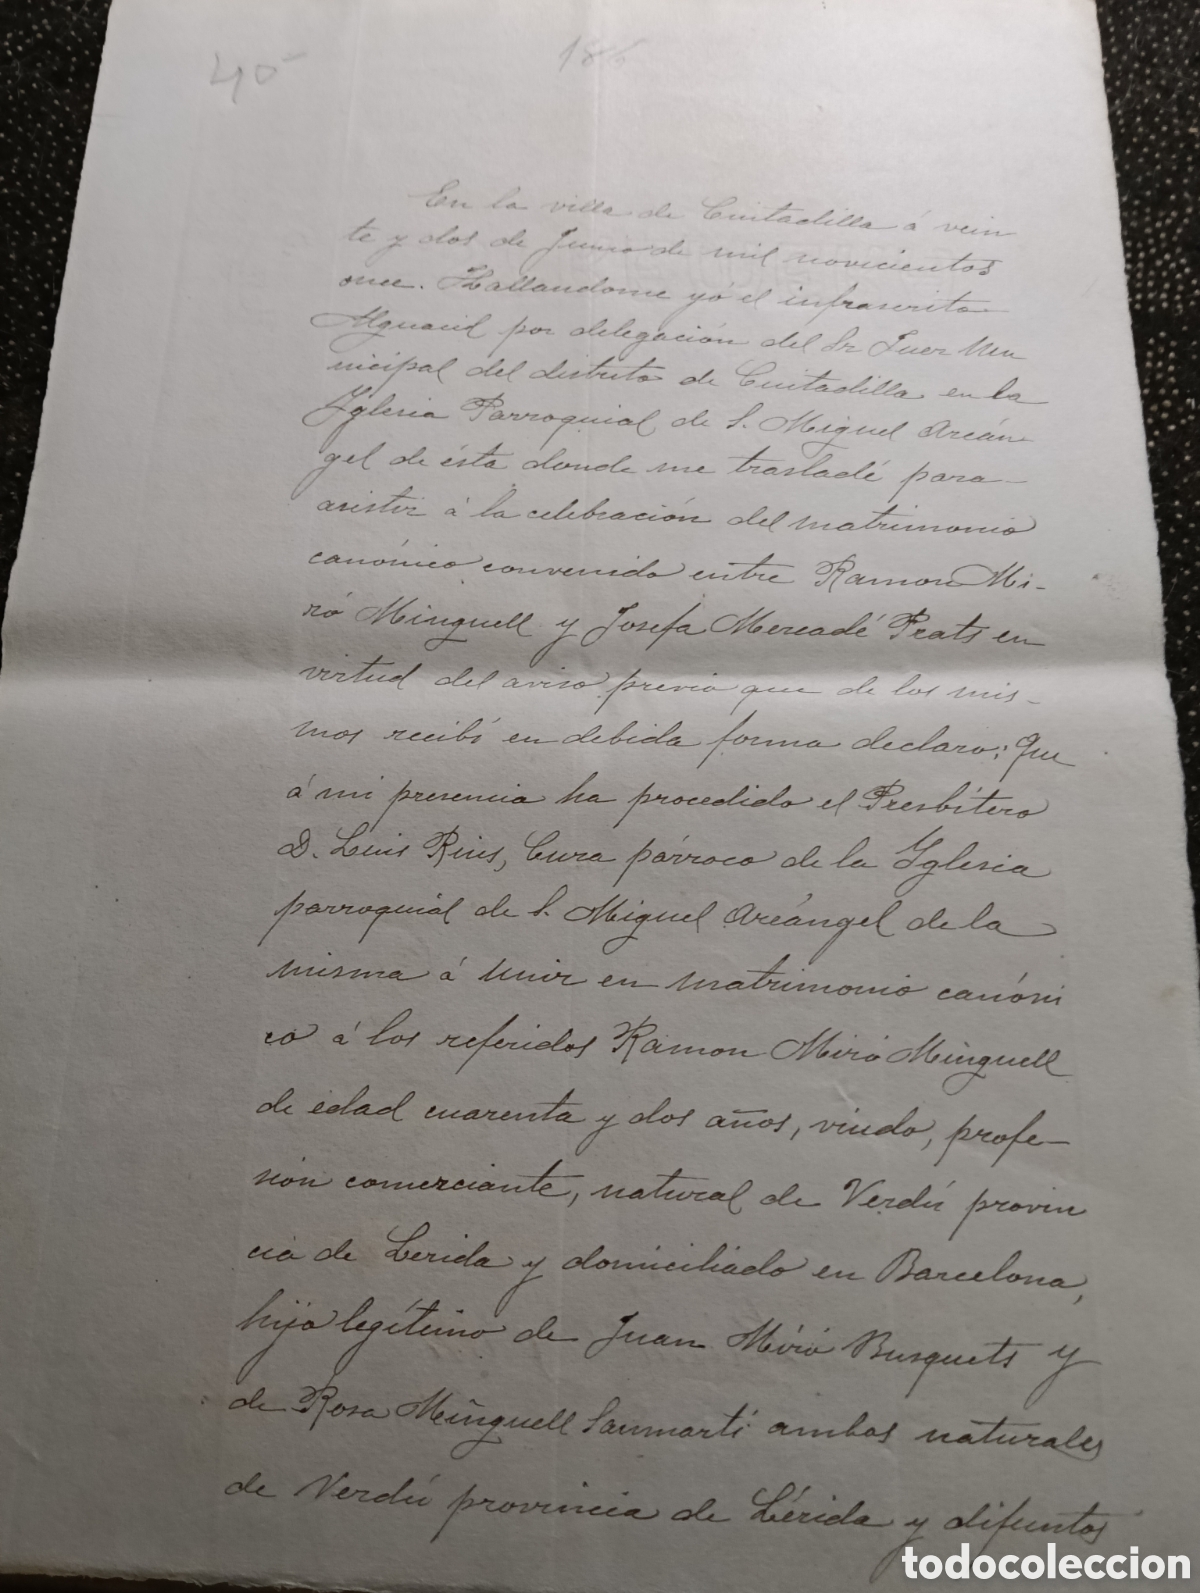 40
186
En la villa de Ciutadilla á vein
te y dos de Junio de mil novecientos
once. Hallandome yó el infrascrito
Alguacil por delegación del Sr Juez Mu
nicipal del distrito de Ciutadilla en la
Yglesia Parroquial de S. Miguel Arcán
gel de ésta donde me trasladé para
asistir á la celebración del matrimonio
canónico convenido entre Ramon Mi-
ró Minguell y Josefa Mercadé Prats en
virtud del aviso previo que de los mis-
mos recibi en debida forma declaro; Que
á mi presencia ha procedido el Presbítero
D. Luis Rius, Cura párroco de la Yglesia
parroquial de S. Miguel Arcángel de la
misma á unir en matrimonio canóni
co á los referidos Ramon Miró Minguell
de edad cuarenta y dos años, viudo, profe-
sión comerciante, natural de Verdú provin
cia de Lerida y domiciliado en Barcelona,
hijo legítimo de Juan Miró Busquets y
de Rosa Minguell Sanmartí ambos naturales
de Verdú provincia de Lérida y difuntos
todocoleccion